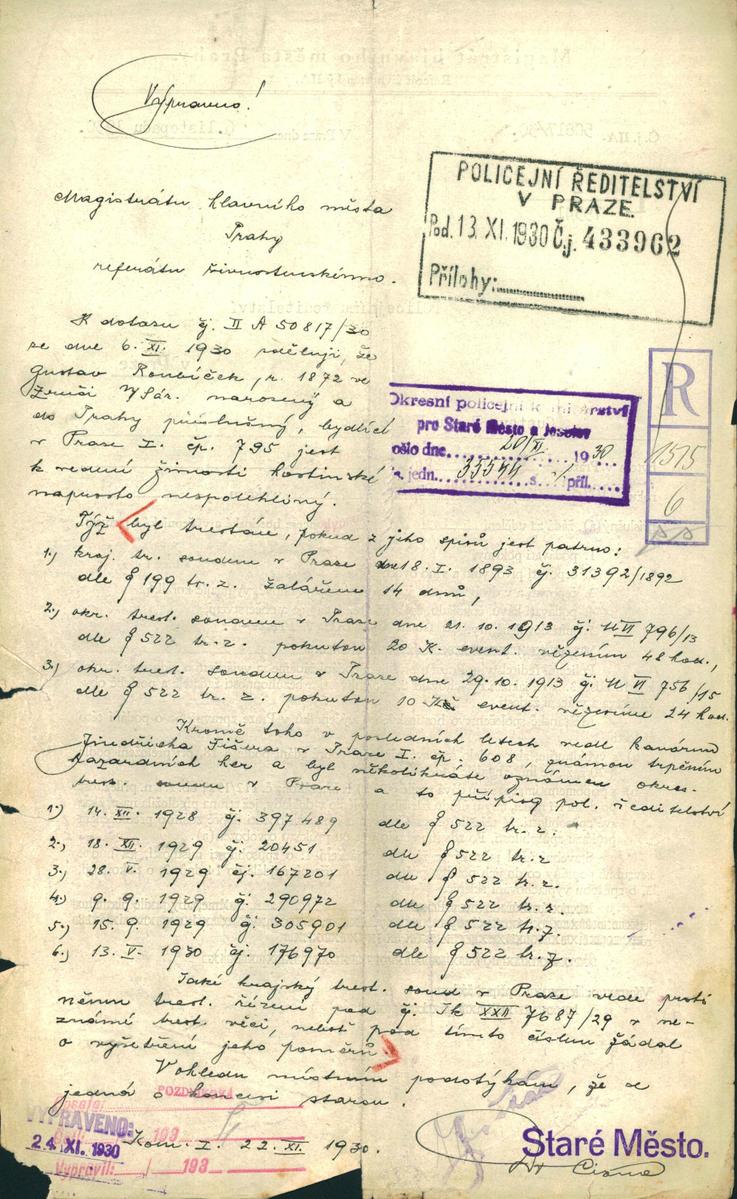 Vypraveno!
POLICEJNÍ ŘEDITELSTVÍ
V PRAZE.
Pod. 13 XI. 1930 Č.j. 433962
Přílohy:
Magistrátu hlavního města
Prahy
referátu živnostenskému.
K dotazu čj. II A 50817/30
ze dne 6. XI. 1930 sděluji, že
Gustav Roubíček, r. 1872 ve
Zruči n/Sáz. narozený a
do Prahy příslušný, bydlící
v Praze I. čp. 795 jest
k vedení živnosti hostinské
naprosto nespolehlivý.
Okresní policejní komisařství
pro Staré Město a Josefov
došlo dne 20/XI 1930
čís. jedn. 35544 s příl.
R
1515
6
Týž byl trestán, pokud z jeho spisů jest patrno:
1.) kraj. tr. soudem v Praze dne 18. I. 1893 čj. 31392/1892
dle § 199 tr. z. žalářem 14 dnů,
2.) okr. trest. soudem v Praze dne 21. 10. 1913 čj. U VI 796/13
dle § 522 tr. z. pokutou 20 K. event. vězením 48 hod.,
3.) okr. trest. soudem v Praze dne 29. 10. 1913 čj. U VI 756/15
dle § 522 tr. z. pokutou 10 Kč event. vězením 24 hod.
Kromě toho v posledních letech vedl kavárnu
Jindřicha Fišera v Praze I. čp. 608, známou trpěním
hazardních her a byl několikráte oznámen okres.
trest. soudu v Praze a to přípisy pol. ředitelství
1.) 14. XII. 1928 čj. 397489 dle § 522 tr. z.
2.) 18. XII. 1929 čj. 20451 dle § 522 tr. z
3.) 28. V. 1929 čj. 167201 dle § 522 tr. z.
4.) 9. 9. 1929 čj. 290972 dle § 522 tr. z.
5.) 15. 9. 1929 čj. 305901 dle § 522 tr. z.
6.) 13. V. 1930 čj. 176970 dle § 522 tr. z.
Také krajský trest. soud v Praze vede proti
němu trest. řízení pod čj. Tk XXII 7687/29 v ne-
známé trest. věci, neboť pod tímto číslem žádal
o vyšetření jeho poměrů.
V ohledu místním podotýkám, že se
jedná o koncesi starou.
POZDNICKÁ
193
VYPRAVENO:
24. XI. 1930
Vypravil: 193
Kom. I. 22. XI. 1930.
Staré Město.
Dr